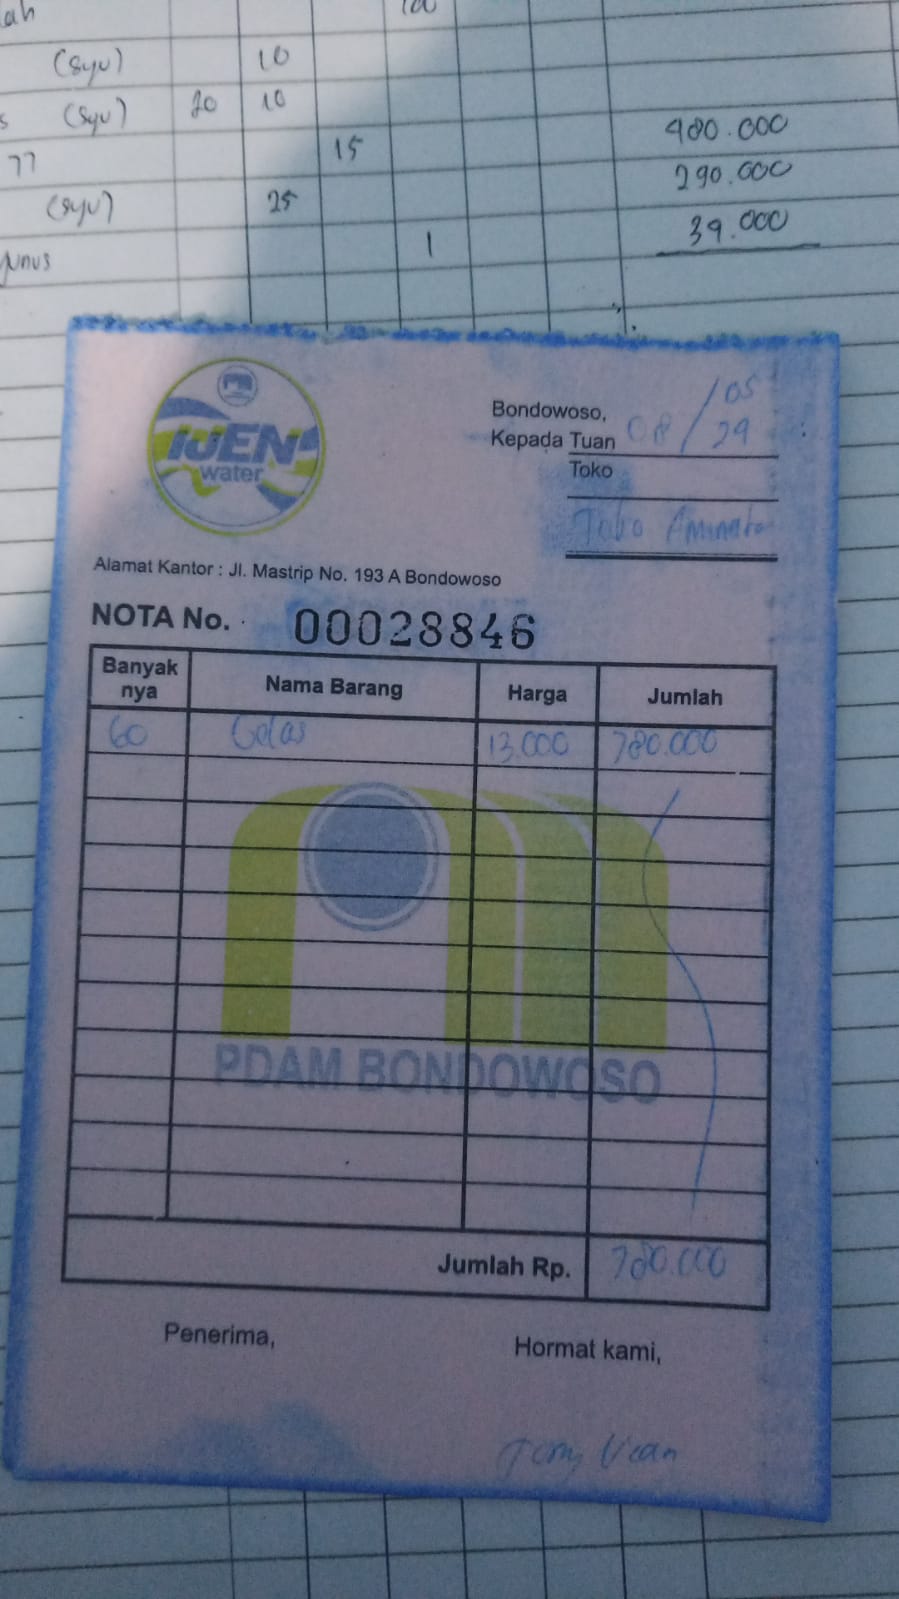 lah
100
(syu) 10
s (syu) 20 10
77 15 480.000
(syu) 25 290.000
yunus 1 39.000
IJEN
water
Bondowoso, 08/05
Kepada Tuan 29
Toko
Toko Aminah
Alamat Kantor : Jl. Mastrip No. 193 A Bondowoso
NOTA No. 00028846
Banyak
nya Nama Barang Harga Jumlah
60 Gelas 13.000 780.000
PDAM BONDOWOSO
Jumlah Rp. 780.000
Penerima,
Hormat kami,